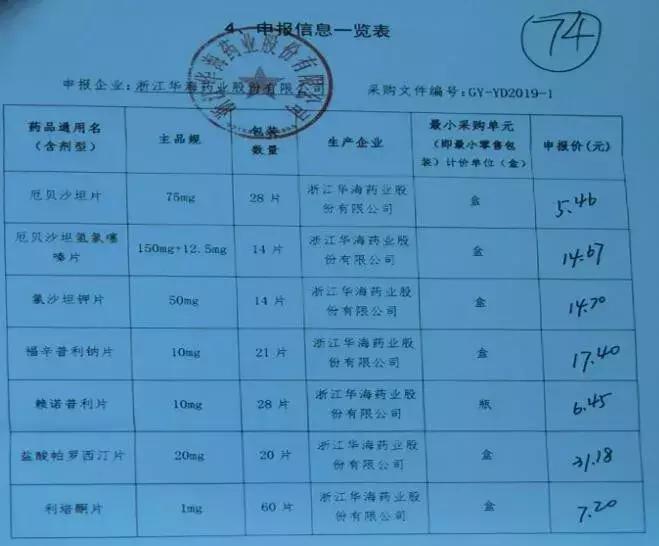 4、申报信息一览表
74
申报企业:浙江华海药业股份有限公司
采购文件编号:GY-YD2019-1
浙江华海药业股份有限公司
药品通用名
(含剂型)
主品规
包装
数量
生产企业
最小采购单元
(即最小零售包
装)计价单位(盒)
申报价(元)
厄贝沙坦片
75mg
28 片
浙江华海药业股
份有限公司
盒
5.46
厄贝沙坦氢氯噻
嗪片
150mg+12.5mg
14 片
浙江华海药业股
份有限公司
盒
14.67
氯沙坦钾片
50mg
14 片
浙江华海药业股
份有限公司
盒
14.70
福辛普利钠片
10mg
21 片
浙江华海药业股
份有限公司
盒
17.40
赖诺普利片
10mg
28 片
浙江华海药业股
份有限公司
瓶
6.45
盐酸帕罗西汀片
20mg
20 片
浙江华海药业股
份有限公司
盒
31.18
利培酮片
1mg
60 片
浙江华海药业股
份有限公司
盒
7.20